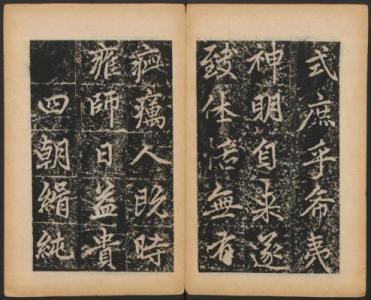 式庶乎希夷
神明自來遂
致休無有
疵癘人既時
雍師日益貴
四朝緝純